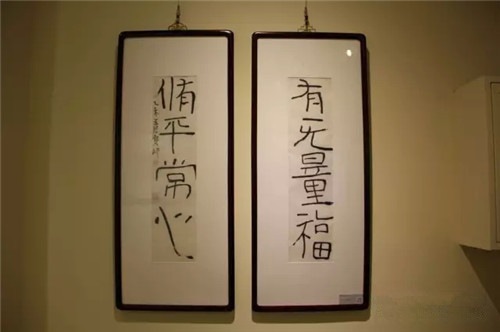 有无量福
脩平常心